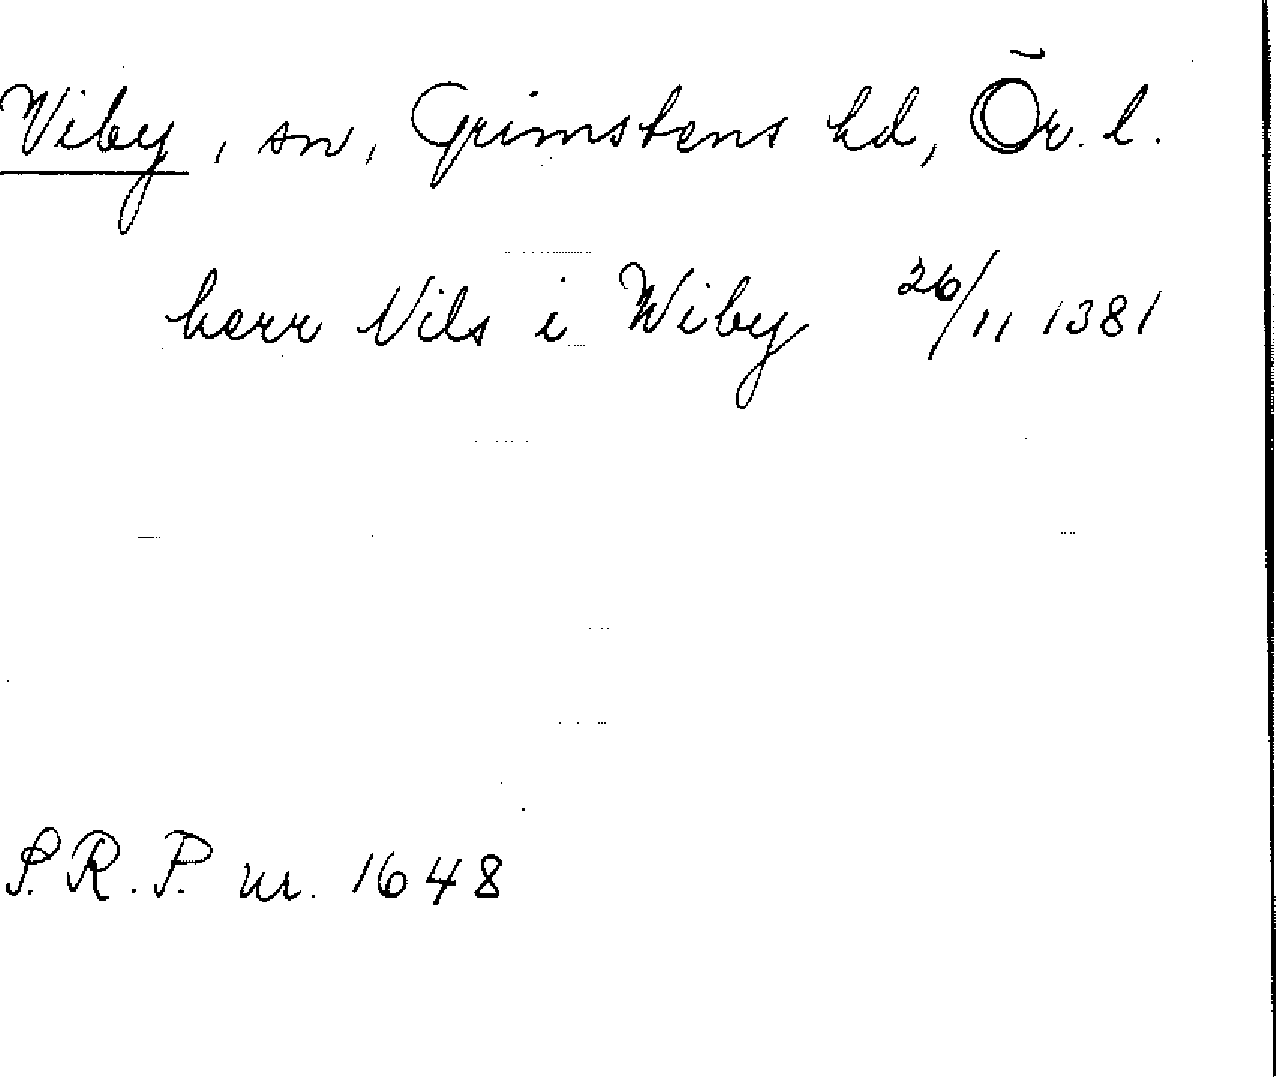 Viby, sn, Grimstens hd, Ör. l.
herr Nils i Wiby 26/11 1381
S.R.P. nr. 1648